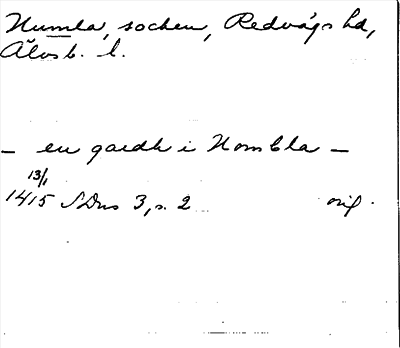 Numla, socken, Redvägs hd,
Älvsb. l.
— en gardh i Nombla —
13/1
1415 SDns 3, s. 2 orig.